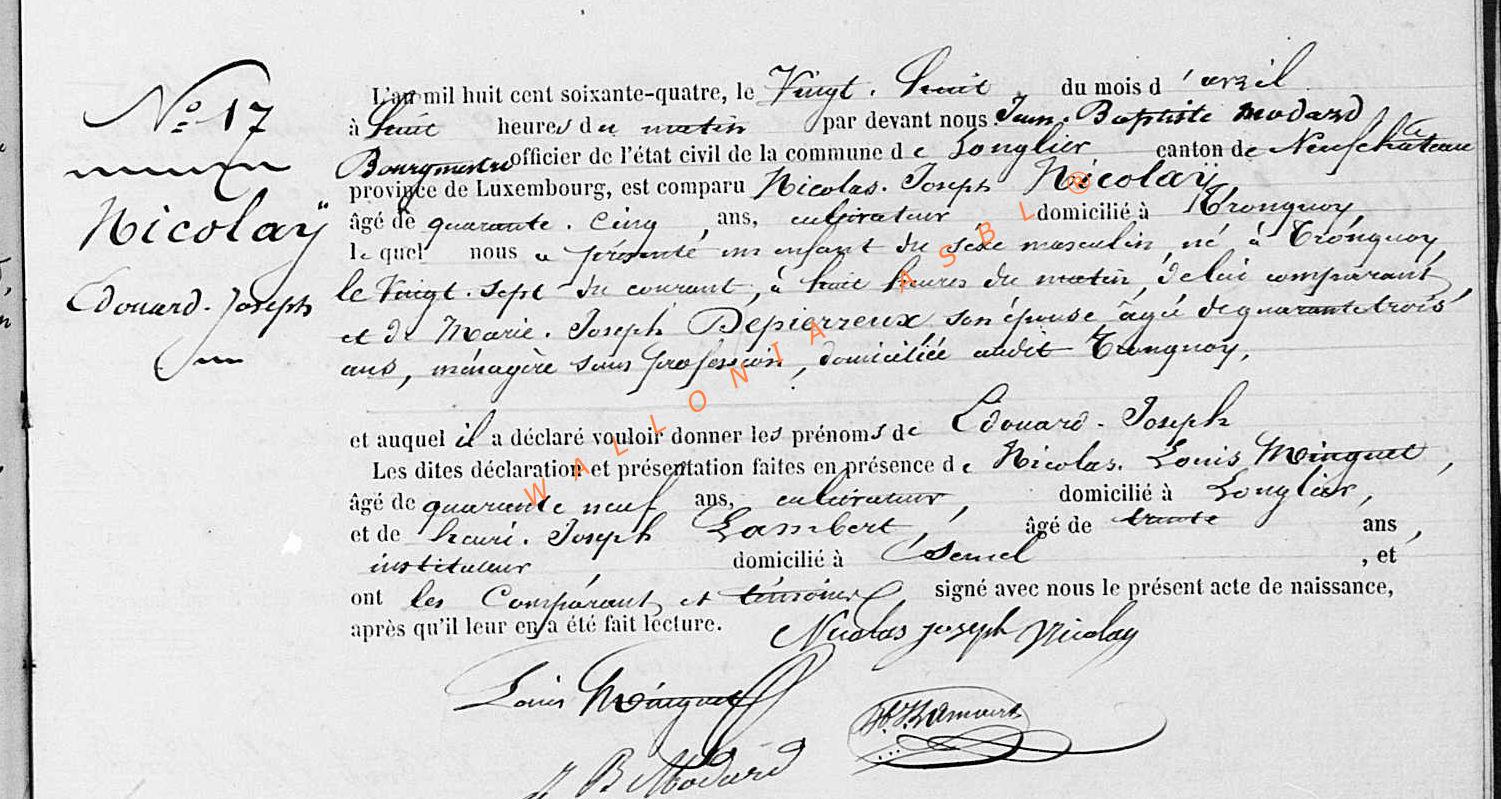 N° 17
Nicolaÿ
Edouard-Joseph
L'an mil huit cent soixante-quatre, le Vingt-huit du mois d'avril
à huit heures du matin par devant nous Jean-Baptiste Modard
Bourgmestre officier de l'état civil de la commune de Longlier canton de Neufchâteau
province de Luxembourg, est comparu Nicolas-Joseph Nicolaÿ
âgé de quarante-cinq ans, cultivateur domicilié à Tronquoy,
lequel nous a présenté un enfant du sexe masculin, né à Tronquoy,
le Vingt-sept du courant, à huit heures du matin, de lui comparant,
et de Marie-Joseph Depierreux son épouse âgée de quarante trois
ans, ménagère sans profession, domiciliée audit Tronquoy,
et auquel il a déclaré vouloir donner les prénoms de Edouard-Joseph
Les dites déclaration et présentation faites en présence de Nicolas-Louis Minguet,
âgé de quarante neuf ans, cultivateur, domicilié à Longlier,
et de henri-Joseph Lambert, âgé de trente ans,
instituteur domicilié à Semel, et
ont les Comparant et témoins signé avec nous le présent acte de naissance,
après qu'il leur en a été fait lecture.
Nicolas joseph Nicolay
Louis Minguet
J B Modard
WALLONIA ASBL ®